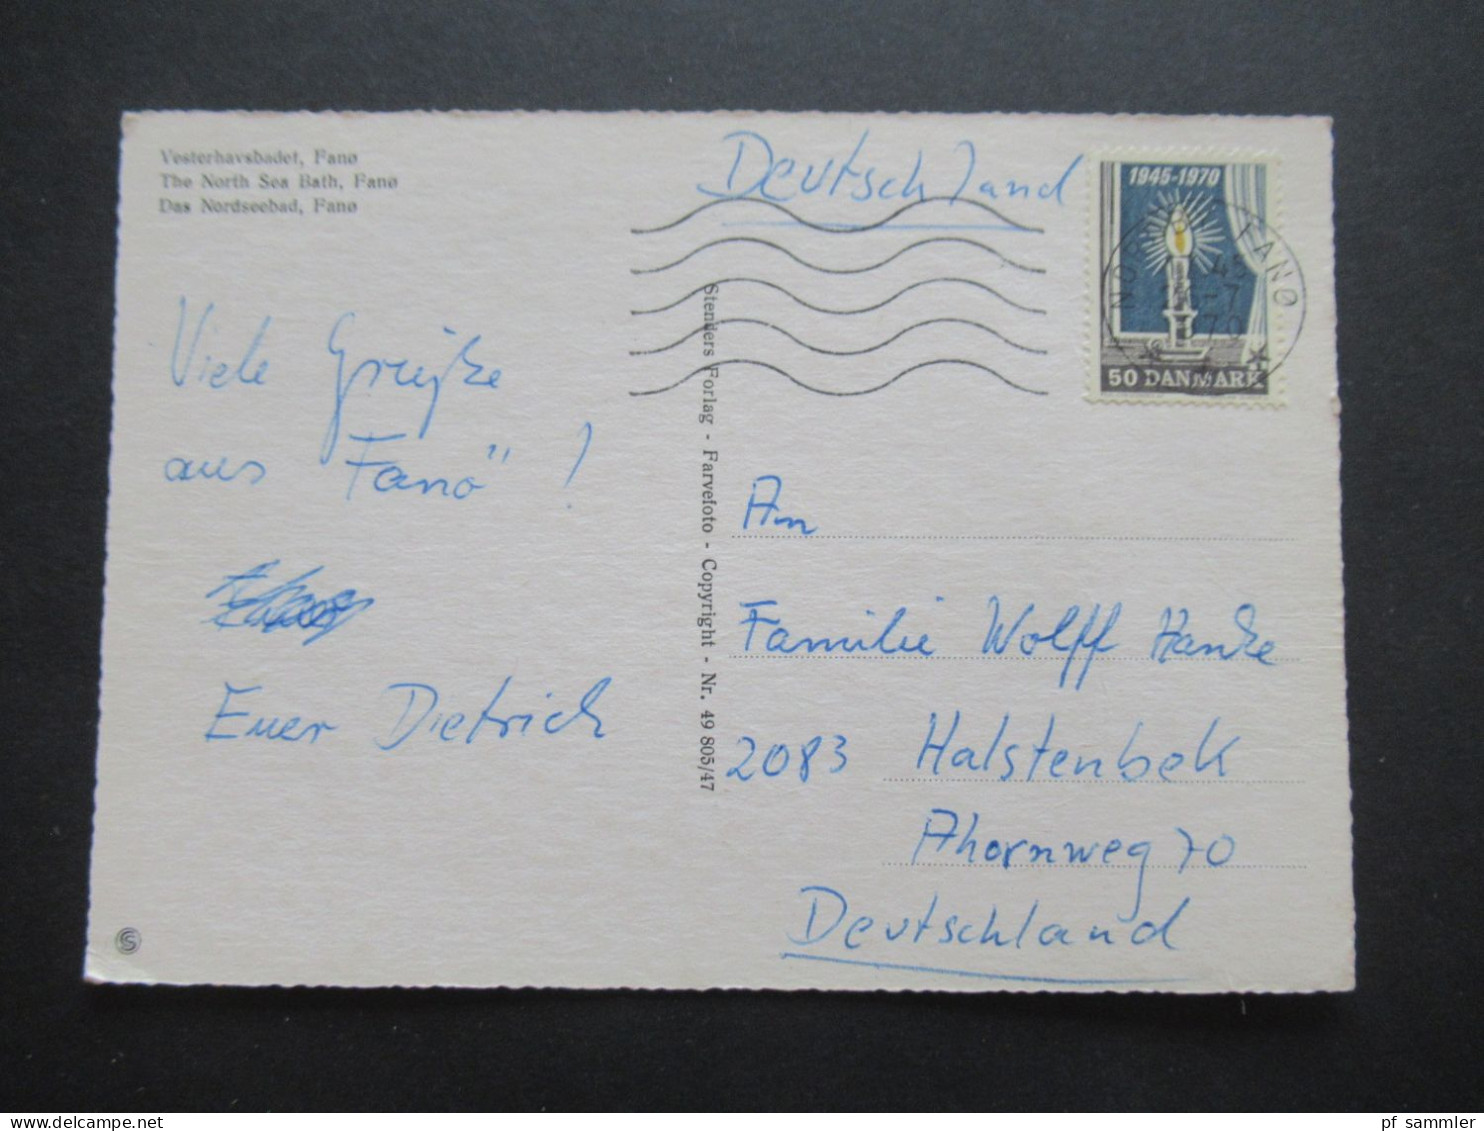 Vesterhavsbadet, Fanø
The North Sea Bath, Fanø
Das Nordseebad, Fanø
Deutschland
1945-1970
50 DANMARK
NORDBY FANØ
Viele Grüße
aus "Fanö" !
Euer Dietrich
Stenders Forlag - Farvefoto - Copyright - Nr. 49 805/47
An
Familie Wolff Hanke
2083 Halstenbek
Ahornweg 70
Deutschland
S
www.delcampe.net
pf_sammler